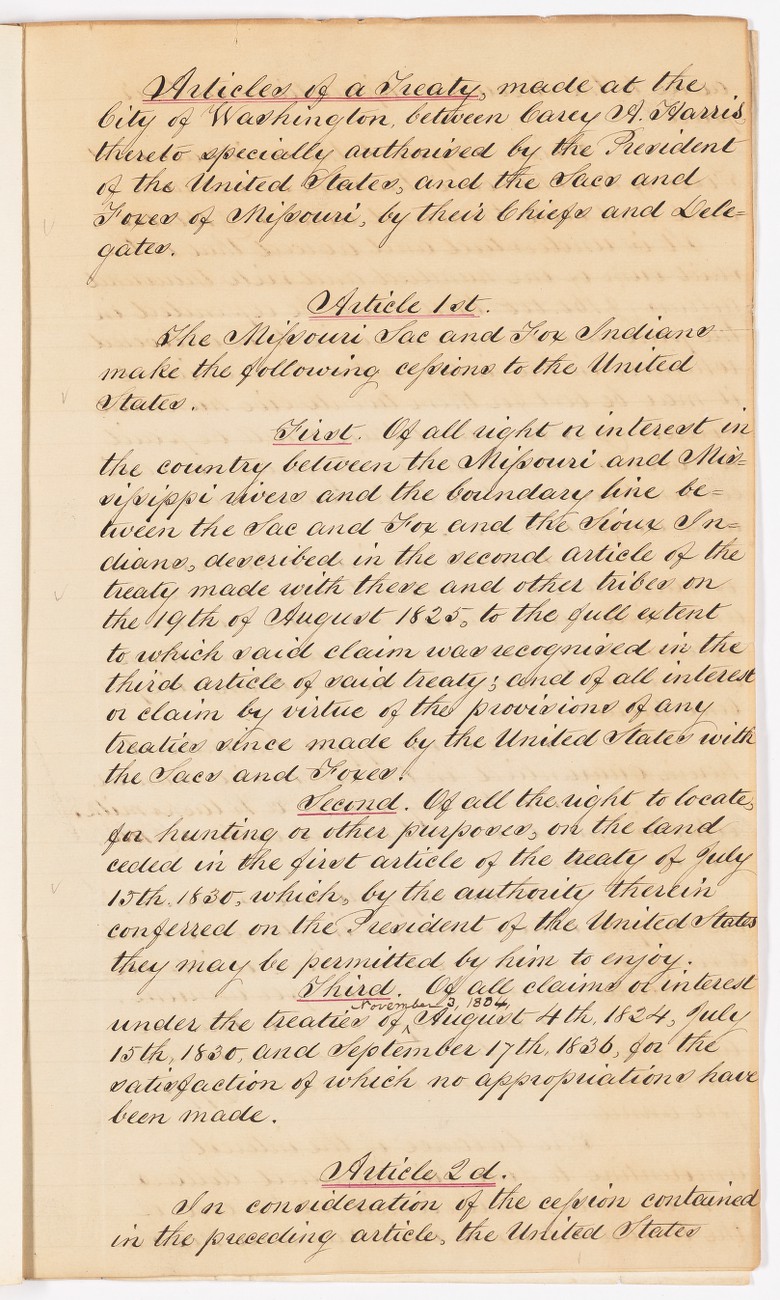 Articles of a Treaty, made at the
City of Washington, between Carey A. Harris,
thereto specially authorised by the President
of the United States, and the Sacs and
Foxes of Missouri, by their Chiefs and Dele=
gates.
Article 1st.
The Missouri Sac and Fox Indians
make the following cessions to the United
States.
First. Of all right or interest in
the country between the Missouri and Mis=
sissippi rivers and the boundary line be=
tween the Sac and Fox and the Sioux In=
dians, described in the second article of the
treaty made with these and other tribes on
the 19th of August 1825, to the full extent
to which said claim was recognised in the
third article of said treaty; and of all interest
or claim by virtue of the provisions of any
treaties since made by the United States with
the Sacs and Foxes.
Second. Of all the right to locate,
for hunting or other purposes, on the land
ceded in the first article of the treaty of July
15th, 1830, which, by the authority therein
conferred on the President of the United States
they may be permitted by him to enjoy.
Third. Of all claims or interest
November 3, 1804,
under the treaties of August 4th, 1824, July
15th, 1830, and September 17th, 1836, for the
satisfaction of which no appropriations have
been made.
Article 2d.
In consideration of the cession contained
in the preceding article, the United States